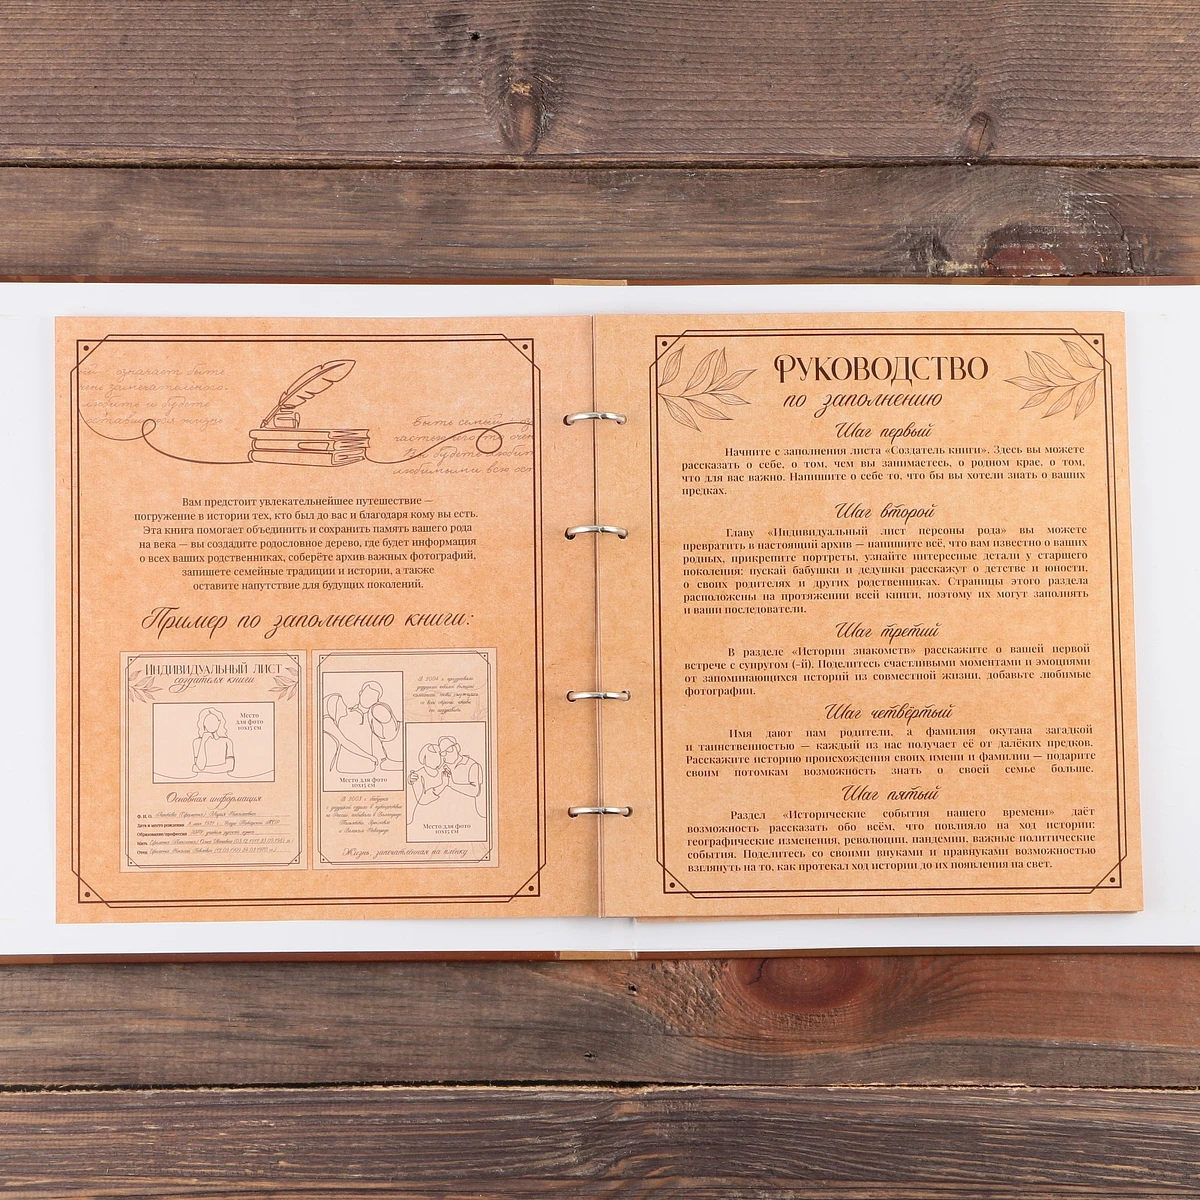 означает быть
замечательного.
любите и будете
Быть семьёй
Вы будете
любимыми всю
Вам предстоит увлекательнейшее путешествие —
погружение в истории тех, кто был до вас и благодаря кому вы есть.
Эта книга помогает объединить и сохранить память вашего рода
на века — вы создадите родословное дерево, где будет информация
о всех ваших родственниках, соберёте архив важных фотографий,
запишете семейные традиции и истории, а также
оставите напутствие для будущих поколений.
Пример по заполнению книги:
Индивидуальный лист
создателя книги
Место
для фото
10х15 см
Основная информация
Ф. И. О.
Дата и место рождения
Образование/профессия
Мать
Отец
Место для фото
10х15 см
В 2004 г. праздновали
В 2003 г. бабушка
Место для фото
10х15 см
Жизнь, запечатлённая на плёнку
Руководство
по заполнению
Шаг первый
Начните с заполнения листа «Создатель книги». Здесь вы можете
рассказать о себе, о том, чем вы занимаетесь, о родном крае, о том,
что для вас важно. Напишите о себе то, что бы вы хотели знать о ваших
предках.
Шаг второй
Главу «Индивидуальный лист персоны рода» вы можете
превратить в настоящий архив — напишите всё, что вам известно о ваших
родных, прикрепите портреты, узнайте интересные детали у старшего
поколения: пускай бабушки и дедушки расскажут о детстве и юности,
о своих родителях и других родственниках. Страницы этого раздела
расположены на протяжении всей книги, поэтому их могут заполнять
и ваши последователи.
Шаг третий
В разделе «Истории знакомств» расскажите о вашей первой
встрече с супругом (-й). Поделитесь счастливыми моментами и эмоциями
от запоминающихся историй из совместной жизни, добавьте любимые
фотографии.
Шаг четвёртый
Имя дают нам родители, а фамилия окутана загадкой
и таинственностью — каждый из нас получает её от далёких предков.
Расскажите историю происхождения своих имени и фамилии — подарите
своим потомкам возможность знать о своей семье больше.
Шаг пятый
Раздел «Исторические события нашего времени» даёт
возможность рассказать обо всём, что повлияло на ход истории:
географические изменения, революции, пандемии, важные политические
события. Поделитесь со своими внуками и правнуками возможностью
взглянуть на то, как протекал ход истории до их появления на свет.